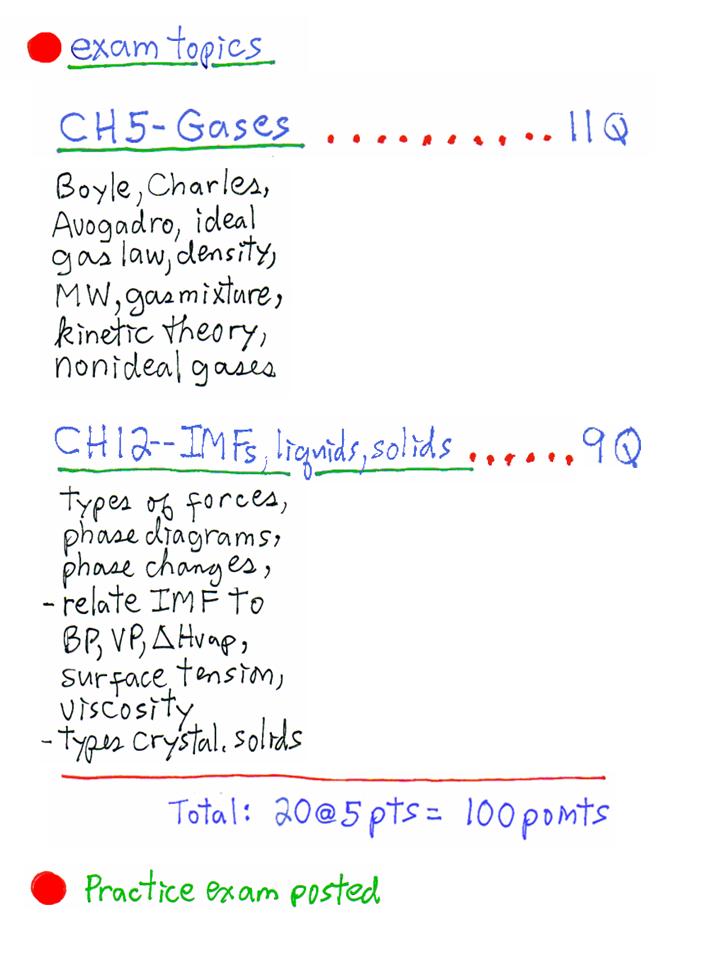 exam topics
CH5-Gases .......... 11Q
Boyle, Charles,
Avogadro, ideal
gas law, density,
MW, gas mixture,
kinetic theory,
nonideal gases
CH12--IMFs, liquids, solids ...... 9Q
types of forces,
phase diagrams,
phase changes,
- relate IMF to
BP, VP, ΔHvap,
surface tension,
viscosity
- types crystal. solids
Total: 20@5pts = 100 points
Practice exam posted